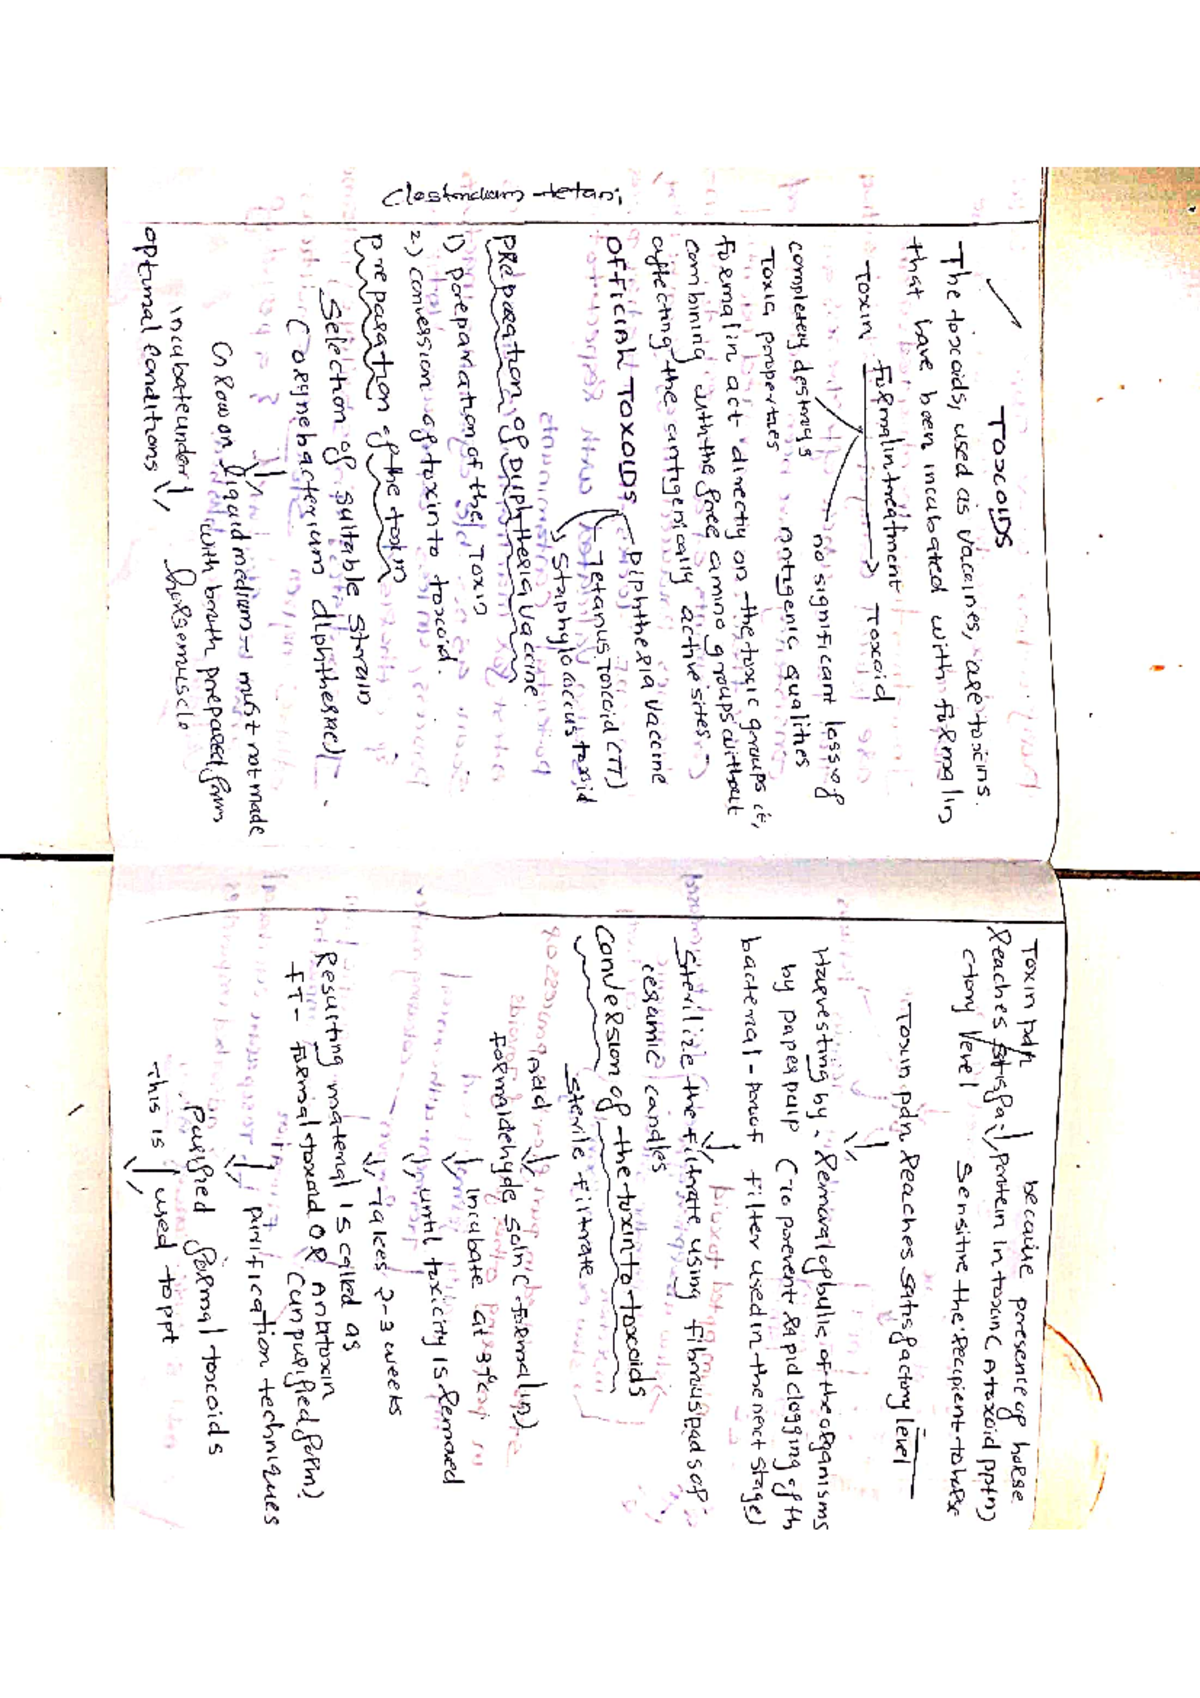 Clostridium tetani
TOXOIDS
The toxoids, used as vaccines, are toxins.
that have been incubated with formalin
Toxin formalin treatment Toxoid
completely destroys
Toxic properties
no significant loss of
antigenic qualities
formalin act directly on the toxic groups it,
combining with the free amino groups without
affecting the antigenically active sites.
OFFICIAL TOXOIDS
Diphtheria vaccine
Tetanus Toxoid (TT)
Staphylococcus toxoid
Preparation of Diphtheria Vaccine
1) Preparation of the Toxin
2) convession of toxin to toxoid.
Preparation of the toxin
Selection of suitable strain
(Corynebacterium diphtheriae)
Grow on liquid medium → must not made
with broth prepared from
horse muscle
Incubate under
optimal conditions
Toxin pdn
Reaches satisfa-
ctory level
because presence of horse
protein in toxin (Atoxoid pptn)
sensitize the recipient to horse
Toxin pdn Reaches satisfactory level
Harvesting by - Removal of bulk of the organisms
by paper pulp (To prevent rapid clogging of th
bacterial-proof filter used in the next stage)
Sterilize the filtrate using fibrous pads or
ceramic candles
Conversion of the toxin to toxoids
Sterile filtrate
Add
formaldehyde soln (formalin)
Incubate at 37°C
until toxicity is Removed
Takes 2-3 weeks
Resulting material is called as
FT - formal toxoid OR Anatoxin
(unpurified form)
purification techniques
Purified formal toxoids
This is used to ppt